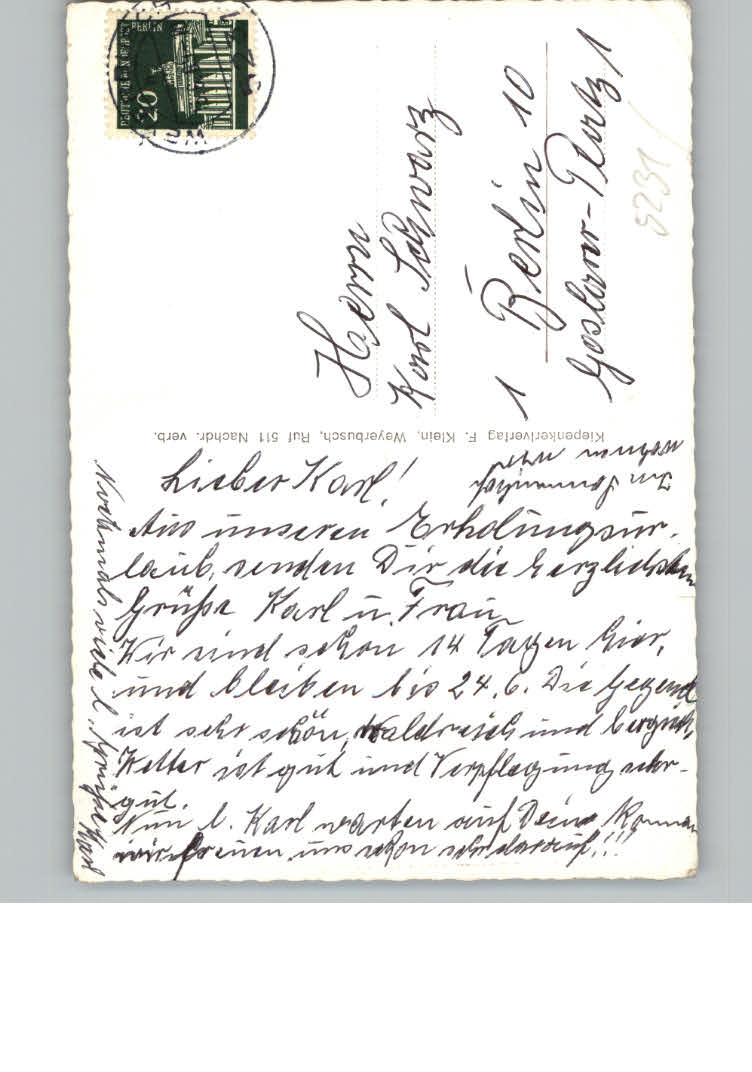 Lieber Karl!
Aus unseren Erholungsur-
laub, senden Dir die herzlichsten
Grüße Karl u. Frau
Wir sind schon 14 Tagen hier,
und bleiben bis 24. 6. Die Gegend
ist sehr schön, waldreich und bergich
Wetter ist gut und Verpflegung sehr-
gut.
Nun l. Karl warten auf Deine Kommen
wir freuen uns schon sehr darauf!!!
Nochmals viele l. Grüße Karl
wohnen wir
Kiepenkerlverlag F. Klein, Weyerbusch, Ruf 511 Nachdr. verb.
Herrn
Karl Schwarz
1 Berlin 10
Goslarer-Platz 1
5231/
DEUTSCHE BUNDESPOST BERLIN
20